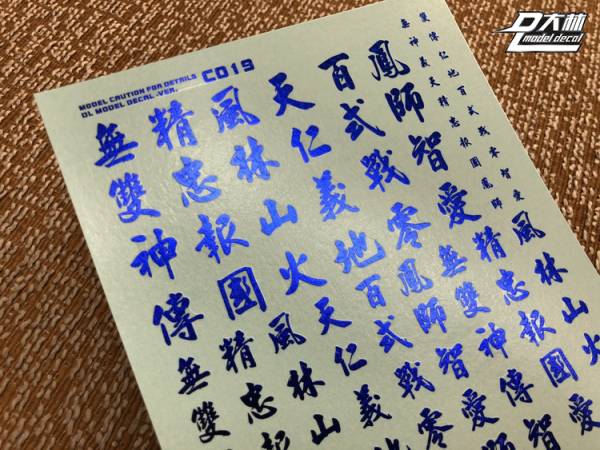 D大林
model decal
MODEL CAUTION FOR DETAILS
DL MODEL DECAL .VER.
C019
無雙神傳
精忠報國
風林山火
天仁義地
百式戰零
鳳師智愛
無雙
精忠報
風林山
天仁義地
百式戰零
鳳師智愛
無雙神傳
精忠報國
風林山火
無神義天精忠報國鳳師
雙傳仁地百式戰零智愛